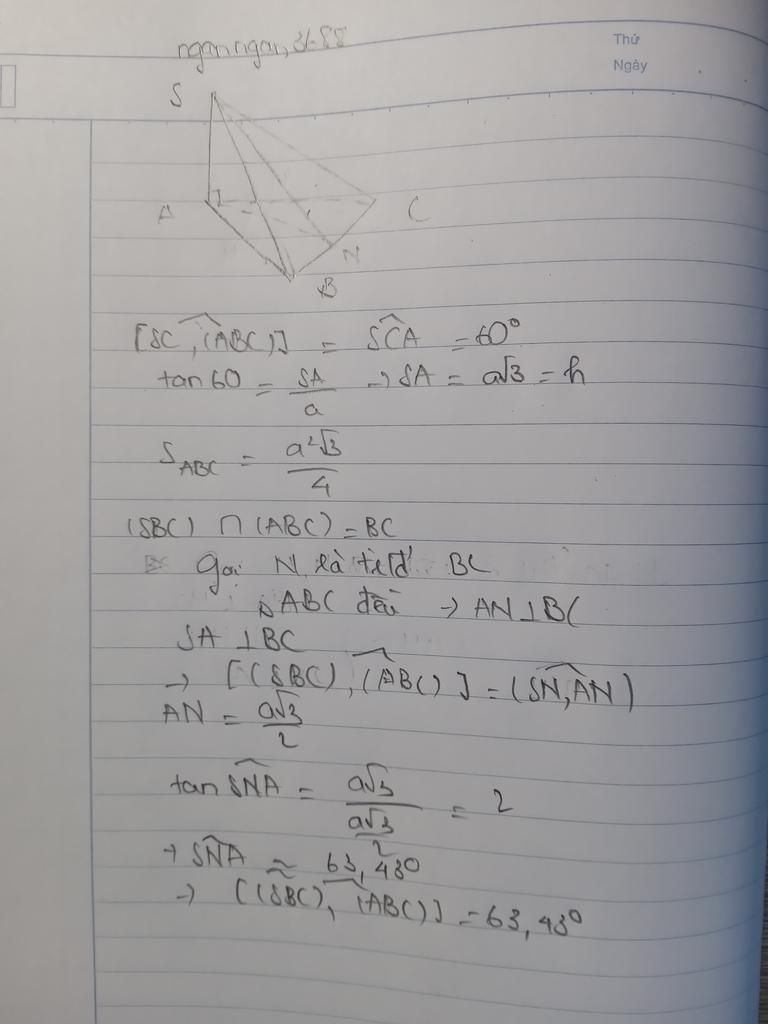 Thứ
Ngày
S
A
C
N
B
[SC, (ABC)] = SCA = 60°
tan 60 = SA/a → SA = a√3 = h
S_ABC = a²√3/4
(SBC) ∩ (ABC) = BC
Gọi N là BC
△ABC đều → AN⊥BC
SA ⊥ BC
→ [(SBC), (ABC)] = (SN, AN)
AN = a√3/2
tan SNA = a√3/(a√3/2) = 2
→ SNA ≈ 63,43°
→ [(SBC), (ABC)] = 63,43°